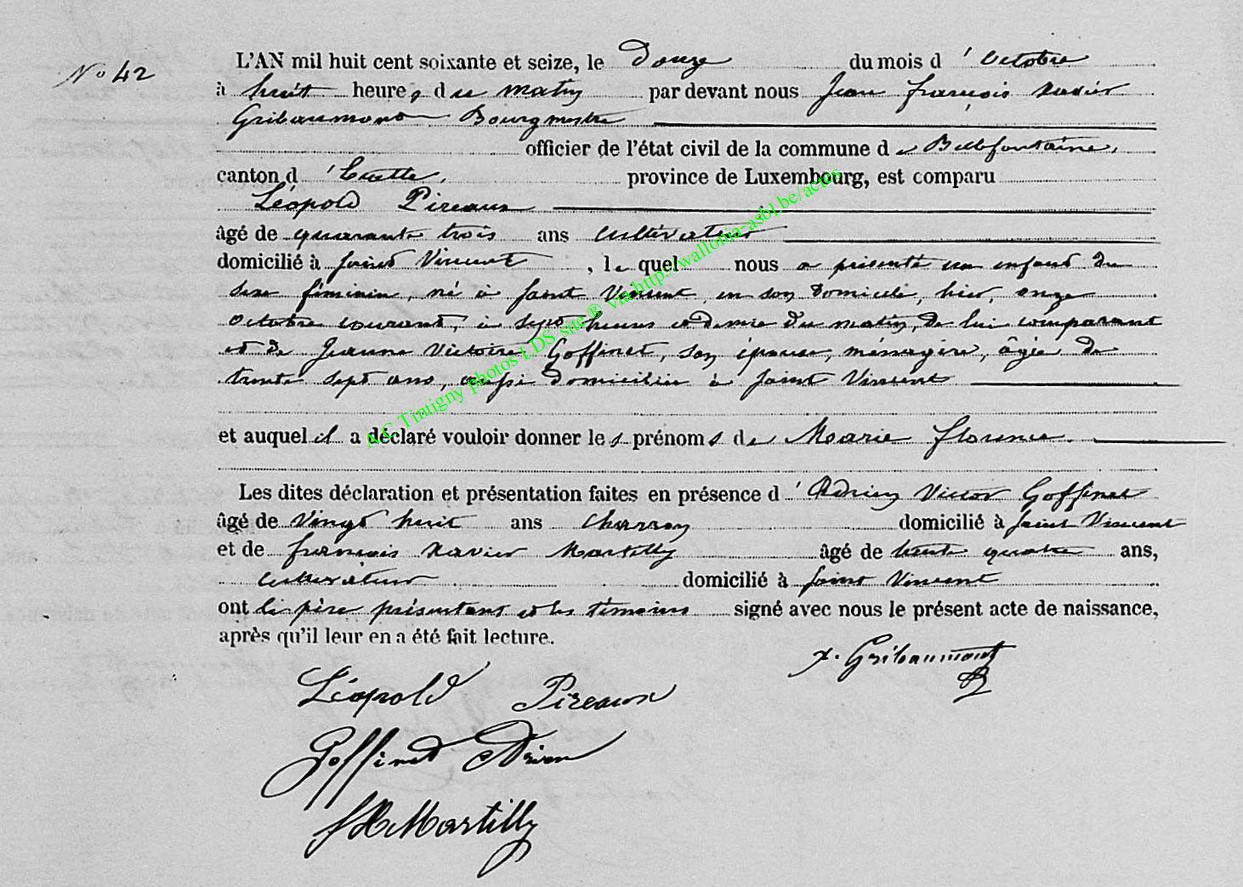 N° 42
L'AN mil huit cent soixante et seize, le Douze du mois d'octobre
à huit heures du matin par devant nous Jean françois xavier
Gribaumont Bourgmestre
officier de l'état civil de la commune de Bellefontaine,
canton d'Etalle, province de Luxembourg, est comparu
Léopold Pireaux
âgé de quarante trois ans cultivateur
domicilié à saint Vincent, le quel nous a présenté un enfant du
sexe féminin, né à saint Vincent, en son domicile, hier, onze
octobre courant, à sept heures et demie du matin, de lui comparant
et de Jeanne Victoire Goffinet, son épouse, ménagère, âgée de
trente sept ans, aussi domiciliée à saint Vincent
et auquel il a déclaré vouloir donner les prénoms de Marie florence.
Les dites déclaration et présentation faites en présence d'Adrien Victor Goffinet
âgé de vingt huit ans charron domicilié à saint Vincent
et de francois Xavier Martilly âgé de trente quatre ans,
cultivateur domicilié à saint Vincent
ont le père présentant et les témoins signé avec nous le présent acte de naissance,
après qu'il leur en a été fait lecture.
x. Gribaumont
Léopold Pireaux
Goffinet Adrien
fX Martilly
AC Tintigny photos LDS site ® via http://wallonia-asbl.be/actes